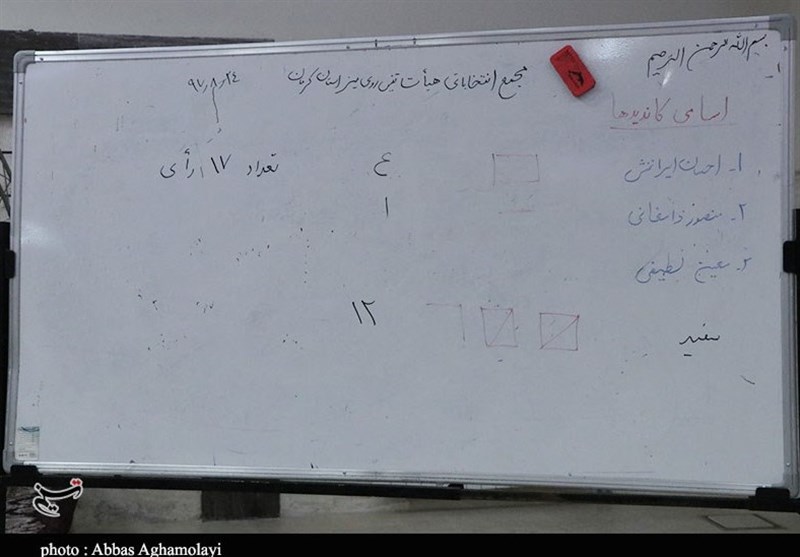 بسم الله الرحمن الرحیم
مجمع انتخاباتی هیأت تنیس روی میز استان کرمان
۹۷/۸/۲۴
اسامی کاندیدها
۱- احسان ایرانمنش ۴ تعداد ۱۷ رأی
۲- منصور دامغانی ۱
۳- لطیفی
سفید ۱۲
تسنیم
photo : Abbas Aghamolayi